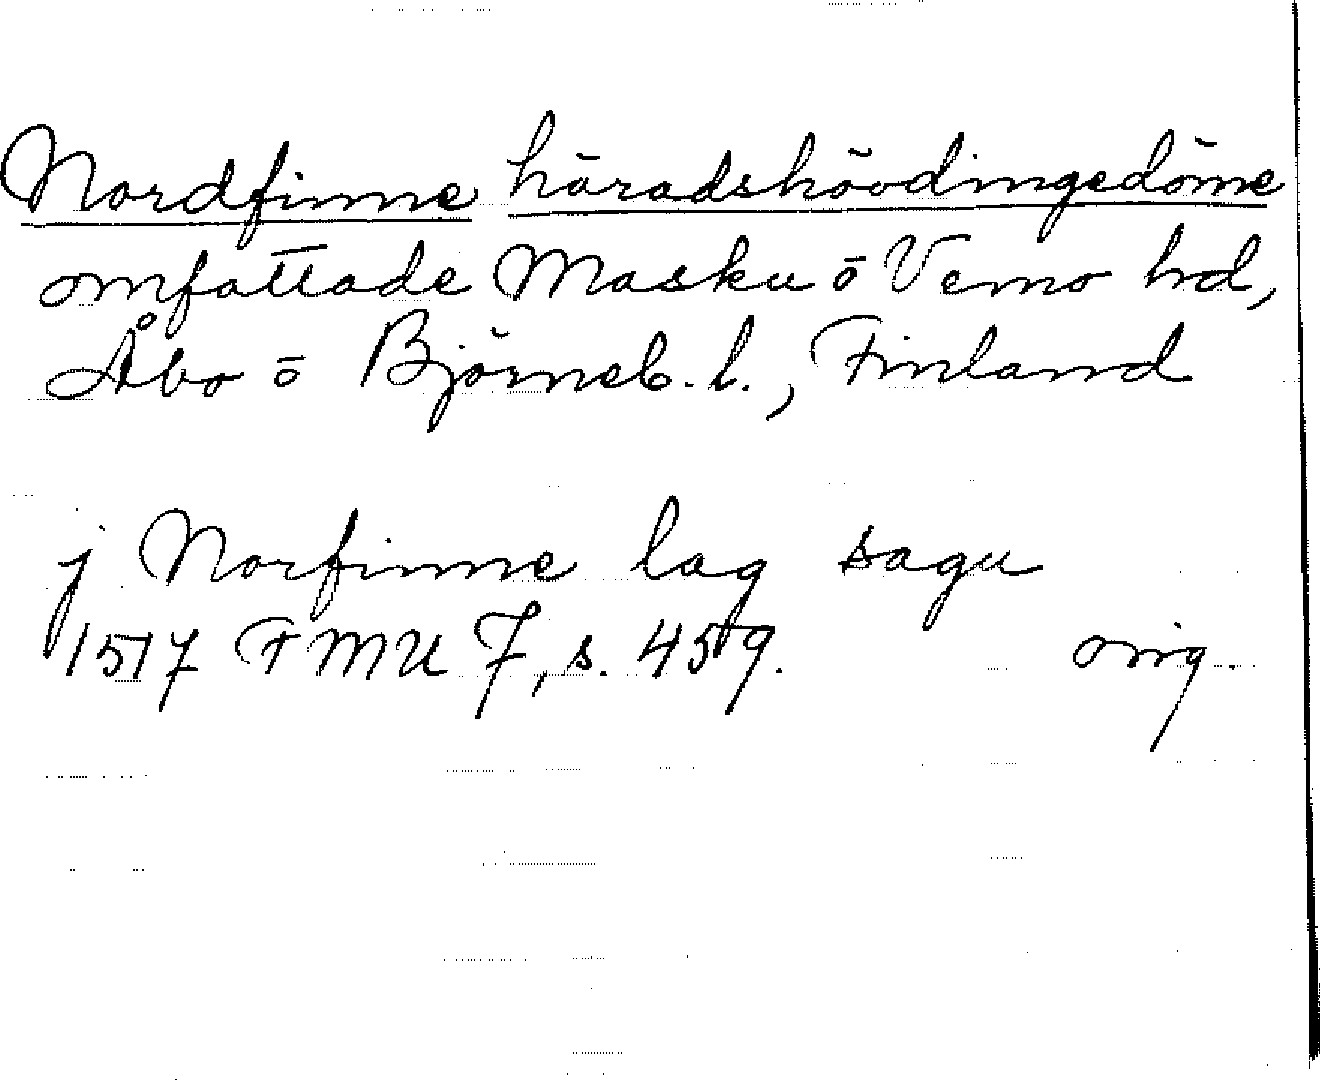 Nordfinne häradshövdingedöme
omfattade Masku o Vemo hd,
Åbo o Björneb. l., Finland
j Norfinne lag sagu
1517 FMU 7, s. 459. orig.